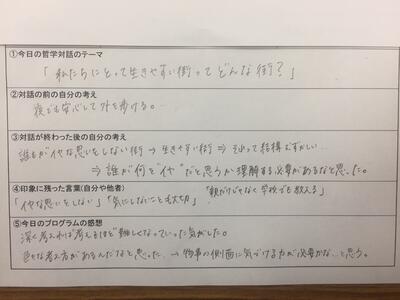 ①今日の哲学対話のテーマ
「私たちにとって生きやすい街ってどんな街?」
②対話の前の自分の考え
夜でも安心して外を歩ける。
③対話が終わった後の自分の考え
誰もがイヤな思いをしない街 → 生きやすい街 ⇒ それって結構むずかしい…
⇒ 誰が何を"イヤ"だと思うか理解する必要があるなと思った。
④印象に残った言葉(自分や他者)
「親だけじゃなく学校でも教える」
「イヤな思いをしない」「気にしないことも大切」
⑤今日のプログラムの感想
深く考えれば考えるほど難しくなっていった気がした。
色々な考え方があるんだなと思った → 物事の側面に気づける力が必要かな…と思う。